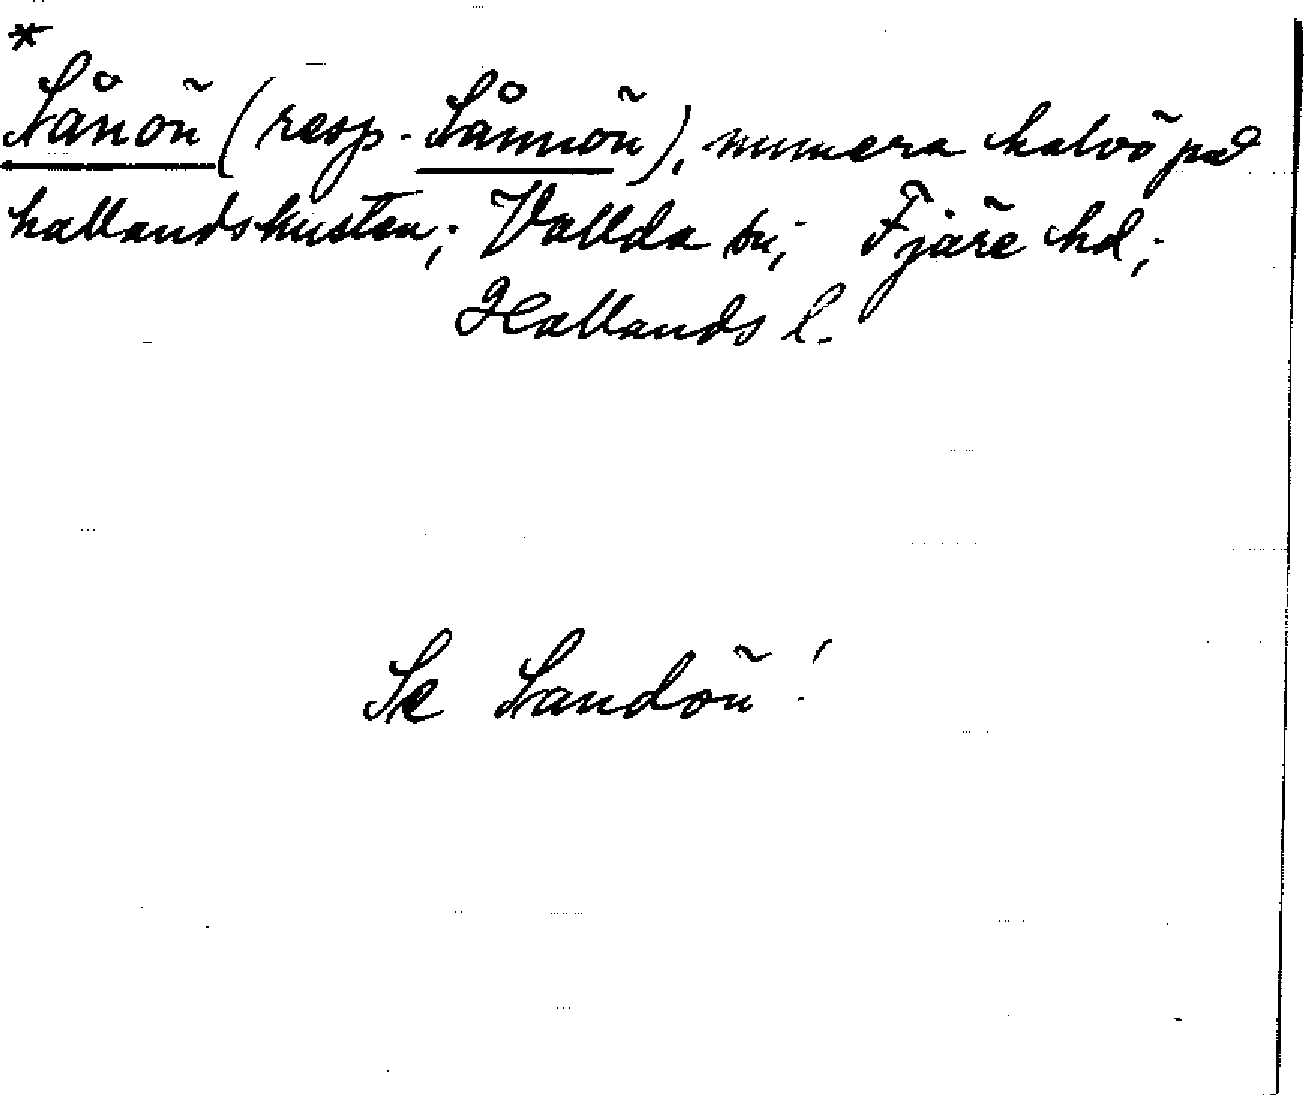 *
Sånön (resp. Sånnön), numera halvö på
hallandskusten; Vallda sn; Fjäre hd;
Hallands l.
Se Sandön!